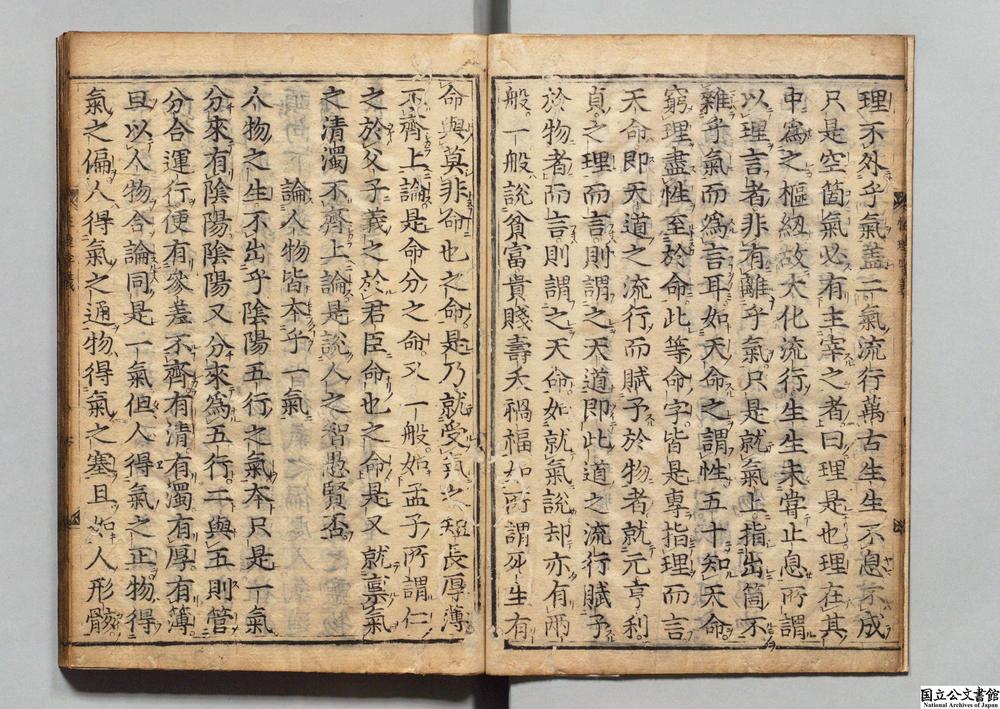 理不外乎氣蓋二氣流行萬古生生不息不成
只是空箇氣必有主宰之者曰理是也理在其
中爲之樞紐故大化流行生生未嘗止息所謂
以理言者非有離乎氣只是就氣上指出箇不
雜乎氣而爲言耳如天命之謂性五十知天命
窮理盡性至於命此等命字皆是專指理而言
天命即天道之流行而賦予於物者就元亨利
貞之理而言則謂之天道即此道之流行賦予
於物者而言則謂之天命如就氣說却亦有兩
般一般說貧富貴賤壽夭禍福如所謂死生有
命與莫非命也之命是乃就受氣之短長厚薄
不齊上論是命分之命又一般如孟子所謂仁
之於父子義之於君臣命也之命是又就稟氣
之清濁不齊上論是說人之智愚賢否
論人物皆本乎一氣
人物之生不出乎陰陽五行之氣本只是一氣
分來有陰陽陰陽又分來爲五行二與五則管
分合運行便有參差不齊有清有濁有厚有薄
且以人物合論同是一氣但人得氣之正物得
氣之偏人得氣之通物得氣之塞且如人形骸
国立公文書館
National Archives of Japan